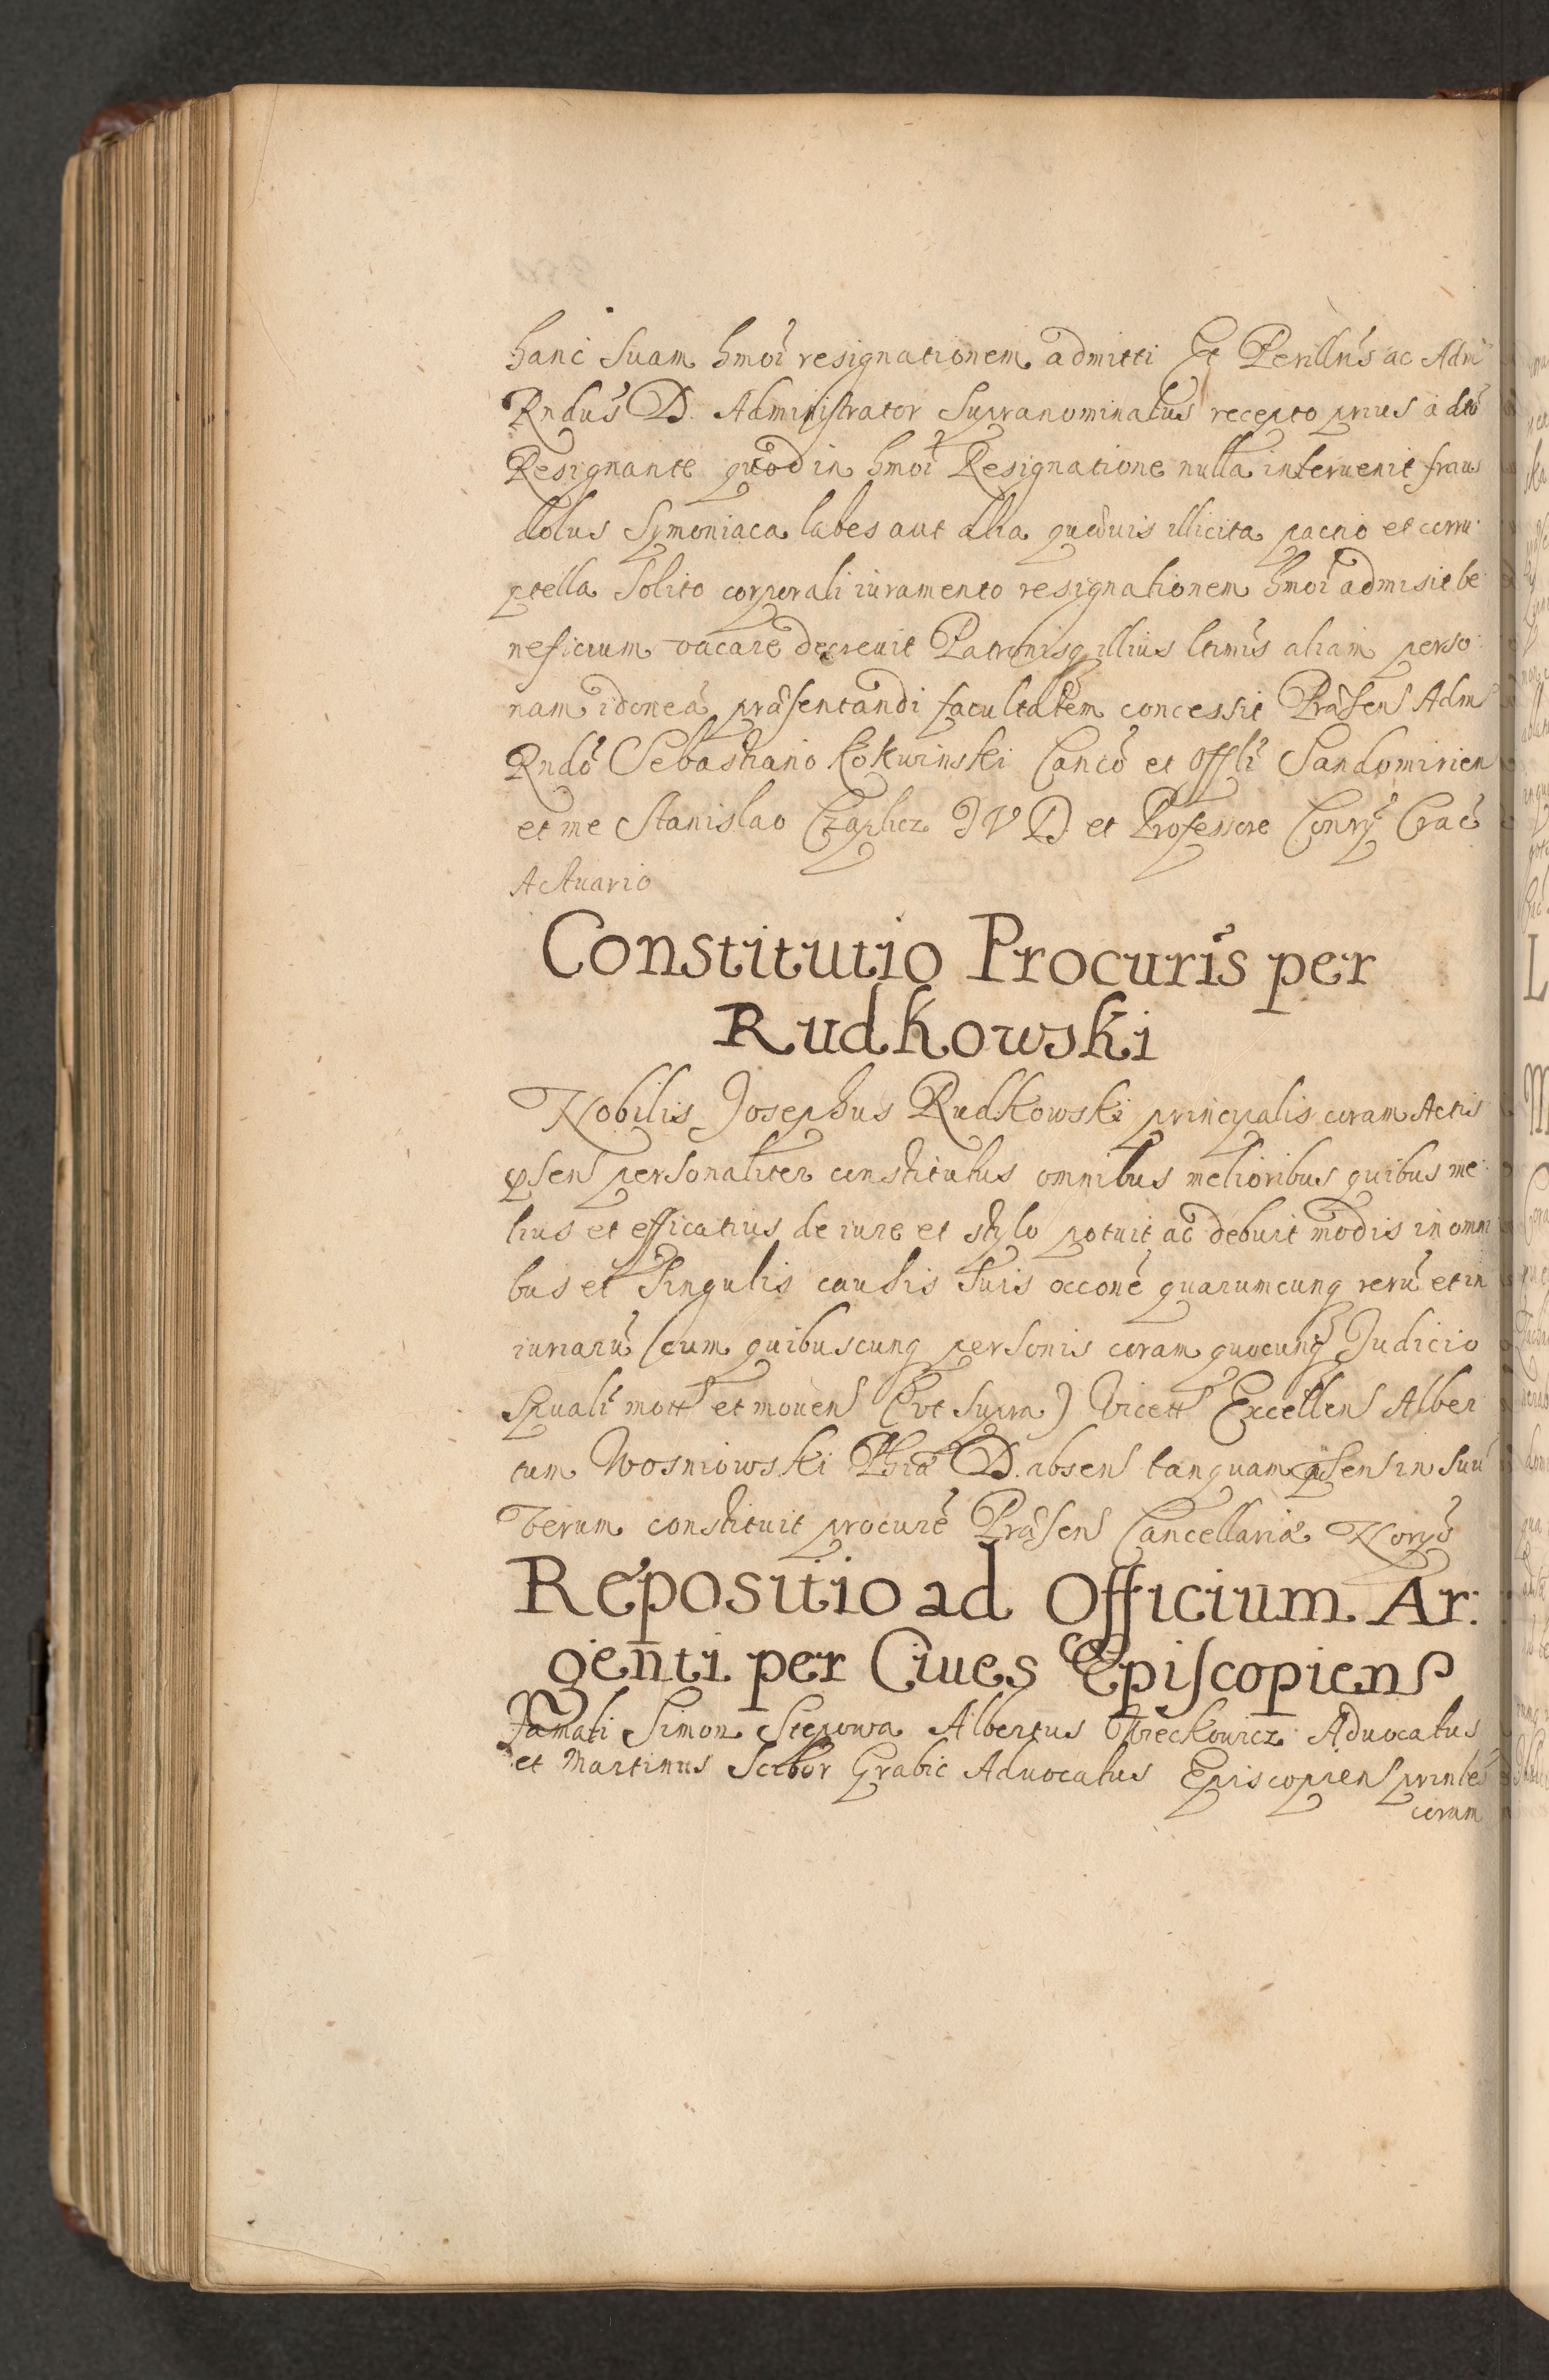 hanc Suam hmoi resignationem admitti Et Perillris ac Adm
Rndus D. Administrator Supranominatus recepto prius a dto
Resignante quod in hmoi Resignatione nulla interuenit fraus
dolus Symoniaca labes aut alia quæuis illicita pactio et corru:
ptella Solito corporali iuramento resignationem hmoi admisit be:
neficium vacare decreuit Patronisq illius ltimis aliam perso:
nam idoneā præsentandi facultatem concessit Præsen Adm
Rndo Sebastiano Kokwinski Canco et Offli Sandomirien
et me Stanislao Czaplicz IVD et Professore Consrÿ Crac
Actuario
Constitutio Procuris per
Rudkowski
Nobilis Josephus Rudkowski principalis coram Actis
psen personaliter constitutus omnibus melioribus quibus me:
lius et efficatius de iure et stylo potuit ac debuit modis in omni
bus et Singulis causis Suis occone quarumcunq rerū et in
iuriarū (cum quibuscunq personis coram quocunq Judicio
Spuali mott et mouen (vt supra) Vicett Excellen Alber
tum Wosniowski Phiæ D. absen tanquam psen in Suū
verum constituit procure Præsen Cancellariæ Norÿs
Repositio ad Officium Ar:
genti per Ciues Episcopiens
famati Simon Stepowa Albertus Advocatus
et Martinus Scibor Grabic Advocatus Episcopien printes
coram